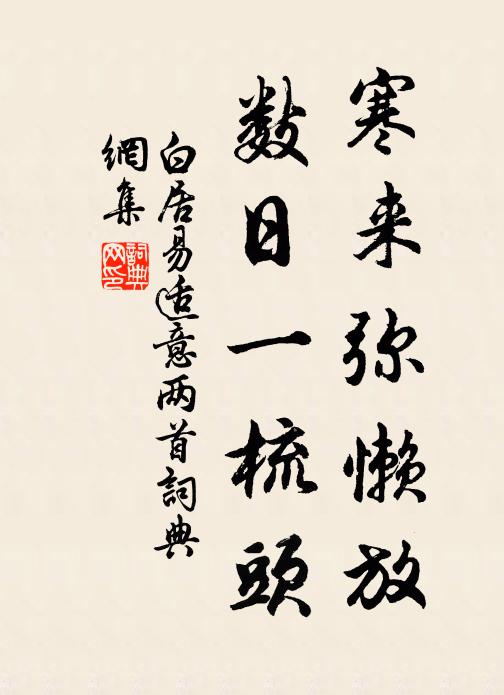 寒来弥懒放
数日一梳頭
白居易适意两首詞典
網集
詞典
网印